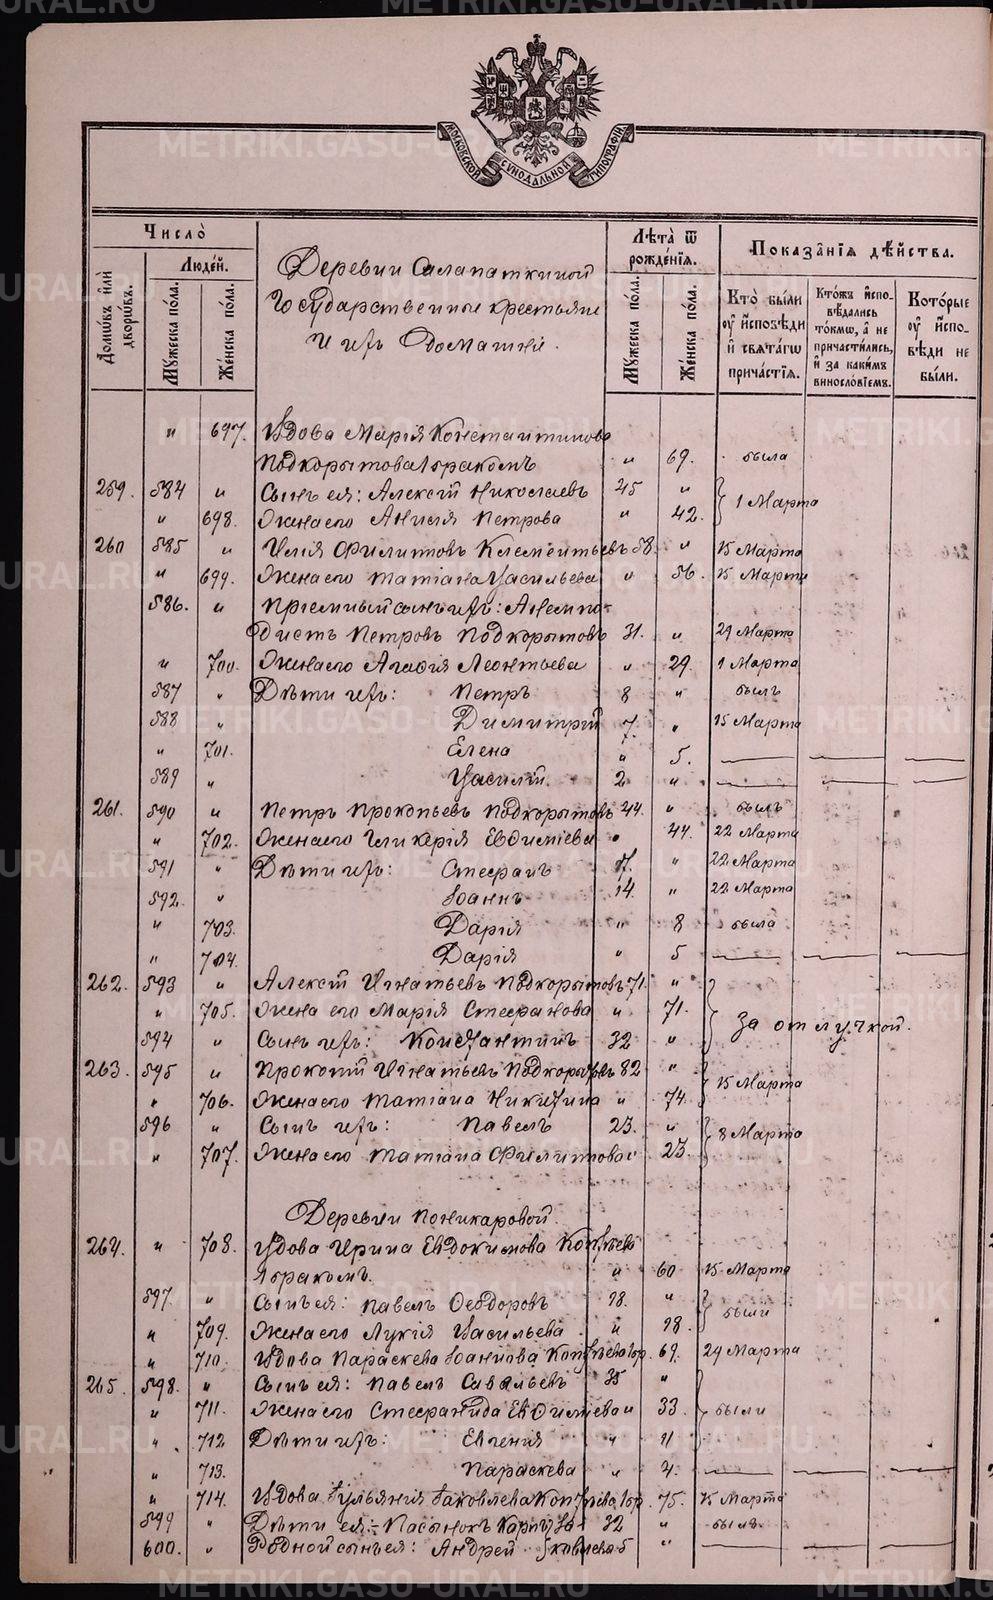 МОСКОВСКОЙ СУНОДАЛЬНОЙ ТИПОГРАФІИ
Число̀
Людéй.
Домѡ́въ и҆лѝ дворѡ́въ.
Мꙋжеска по́ла.
Же́нска по́ла.
Деревни Салапаткиной
Государственные крестьяне
и ихъ домашніе.
Лѣта̀ ѿ рожде́нїѧ.
Мꙋжеска по́ла.
Же́нска по́ла.
Показа̂нїѧ дѣ́йства.
Кто̀ бы́ли оу҆ и҆сповѣди и҆ свѧта́гѡ прича́стїѧ.
Кто́жъ и҆спо-вѣ́дались то́кмѡ, а҆ не причасти́лись, и҆ за каки́мъ винословїемъ.
Кото́рые оу҆ и҆спо-вѣди не бы́ли.
" 697. Вдова Марія Константинова
Подкорытова 1 бракомъ " 69. была
259. 584 " Сынъ ея: Алексѣй Николаевъ 45 "
" 698. Жена его Анисія Петрова " 42. } 1 Марта
260 585 " Илія Филиповъ Клементьевъ 58. " 15 Марта
" 699. Жена его Татіана Васильева " 56. 15 Марта
586. " Пріемный сынъ ихъ: Анемпо-
дистъ Петровъ Подкорытовъ 31. " 29 Марта
" 700. Жена его Агафія Леонтьева " 29. 1 Марта
587 " Дѣти ихъ: Петръ 8 " былъ
588 " Димитрій 7. " 15 Марта
" 701. Елена " 5. — — —
589 " Василій. 2 " — — —
261. 590 " Петръ Прокопьевъ Подкорытовъ 44. " былъ
" 702. Жена его Гликерія Евдиміева " 44. 22 Марта
591 " Дѣти ихъ: Стефанъ 17. " 22 Марта
592. " Іоаннъ 14. " 22 Марта
" 703. Дарія " 8 была
" 704. Дарія " 5 — — —
262. 593 " Алексѣй Игнатьевъ Подкорытовъ 71. "
" 705. Жена его Марія Стефанова " 71. } за отлучкой.
594 " Сынъ ихъ: Константинъ 32 "
263. 595 " Прокопій Игнатьевъ Подкорытовъ 82 "
" 706. Жена его Татіана Никитина " 74. } 15 Марта
596 " Сынъ ихъ: Павелъ 23. "
" 707. Жена его Татіана Филипова " 23. } 8 Марта
Деревни Поникаровой.
264. " 708. Вдова Ирина Евдокимова
1 бракомъ. " 60 15 Марта
597. " Сынъ ея: Павелъ Ѳеодоровъ 18. "
" 709. Жена его Лукія Васильева " 18. } были
" 710. Вдова Параскева Іоаннова 1 бр. 69. 29 Марта
265. 598. " Сынъ ея: Павелъ Савельевъ 35 "
" 711. Жена его Стефанида Евѳиміева " 33. } были
" 712 Дѣти ихъ: Евгенія " 11
" 713. Параскева " 4. — — —
" 714. Вдова Іульянія Іаковлева 1 бр. 75. 15 Марта
599 " Дѣти ея: — Пасынокъ 32 " былъ
600. " Родной сынъ ея: Андрей Яковлевъ 5 " — — —